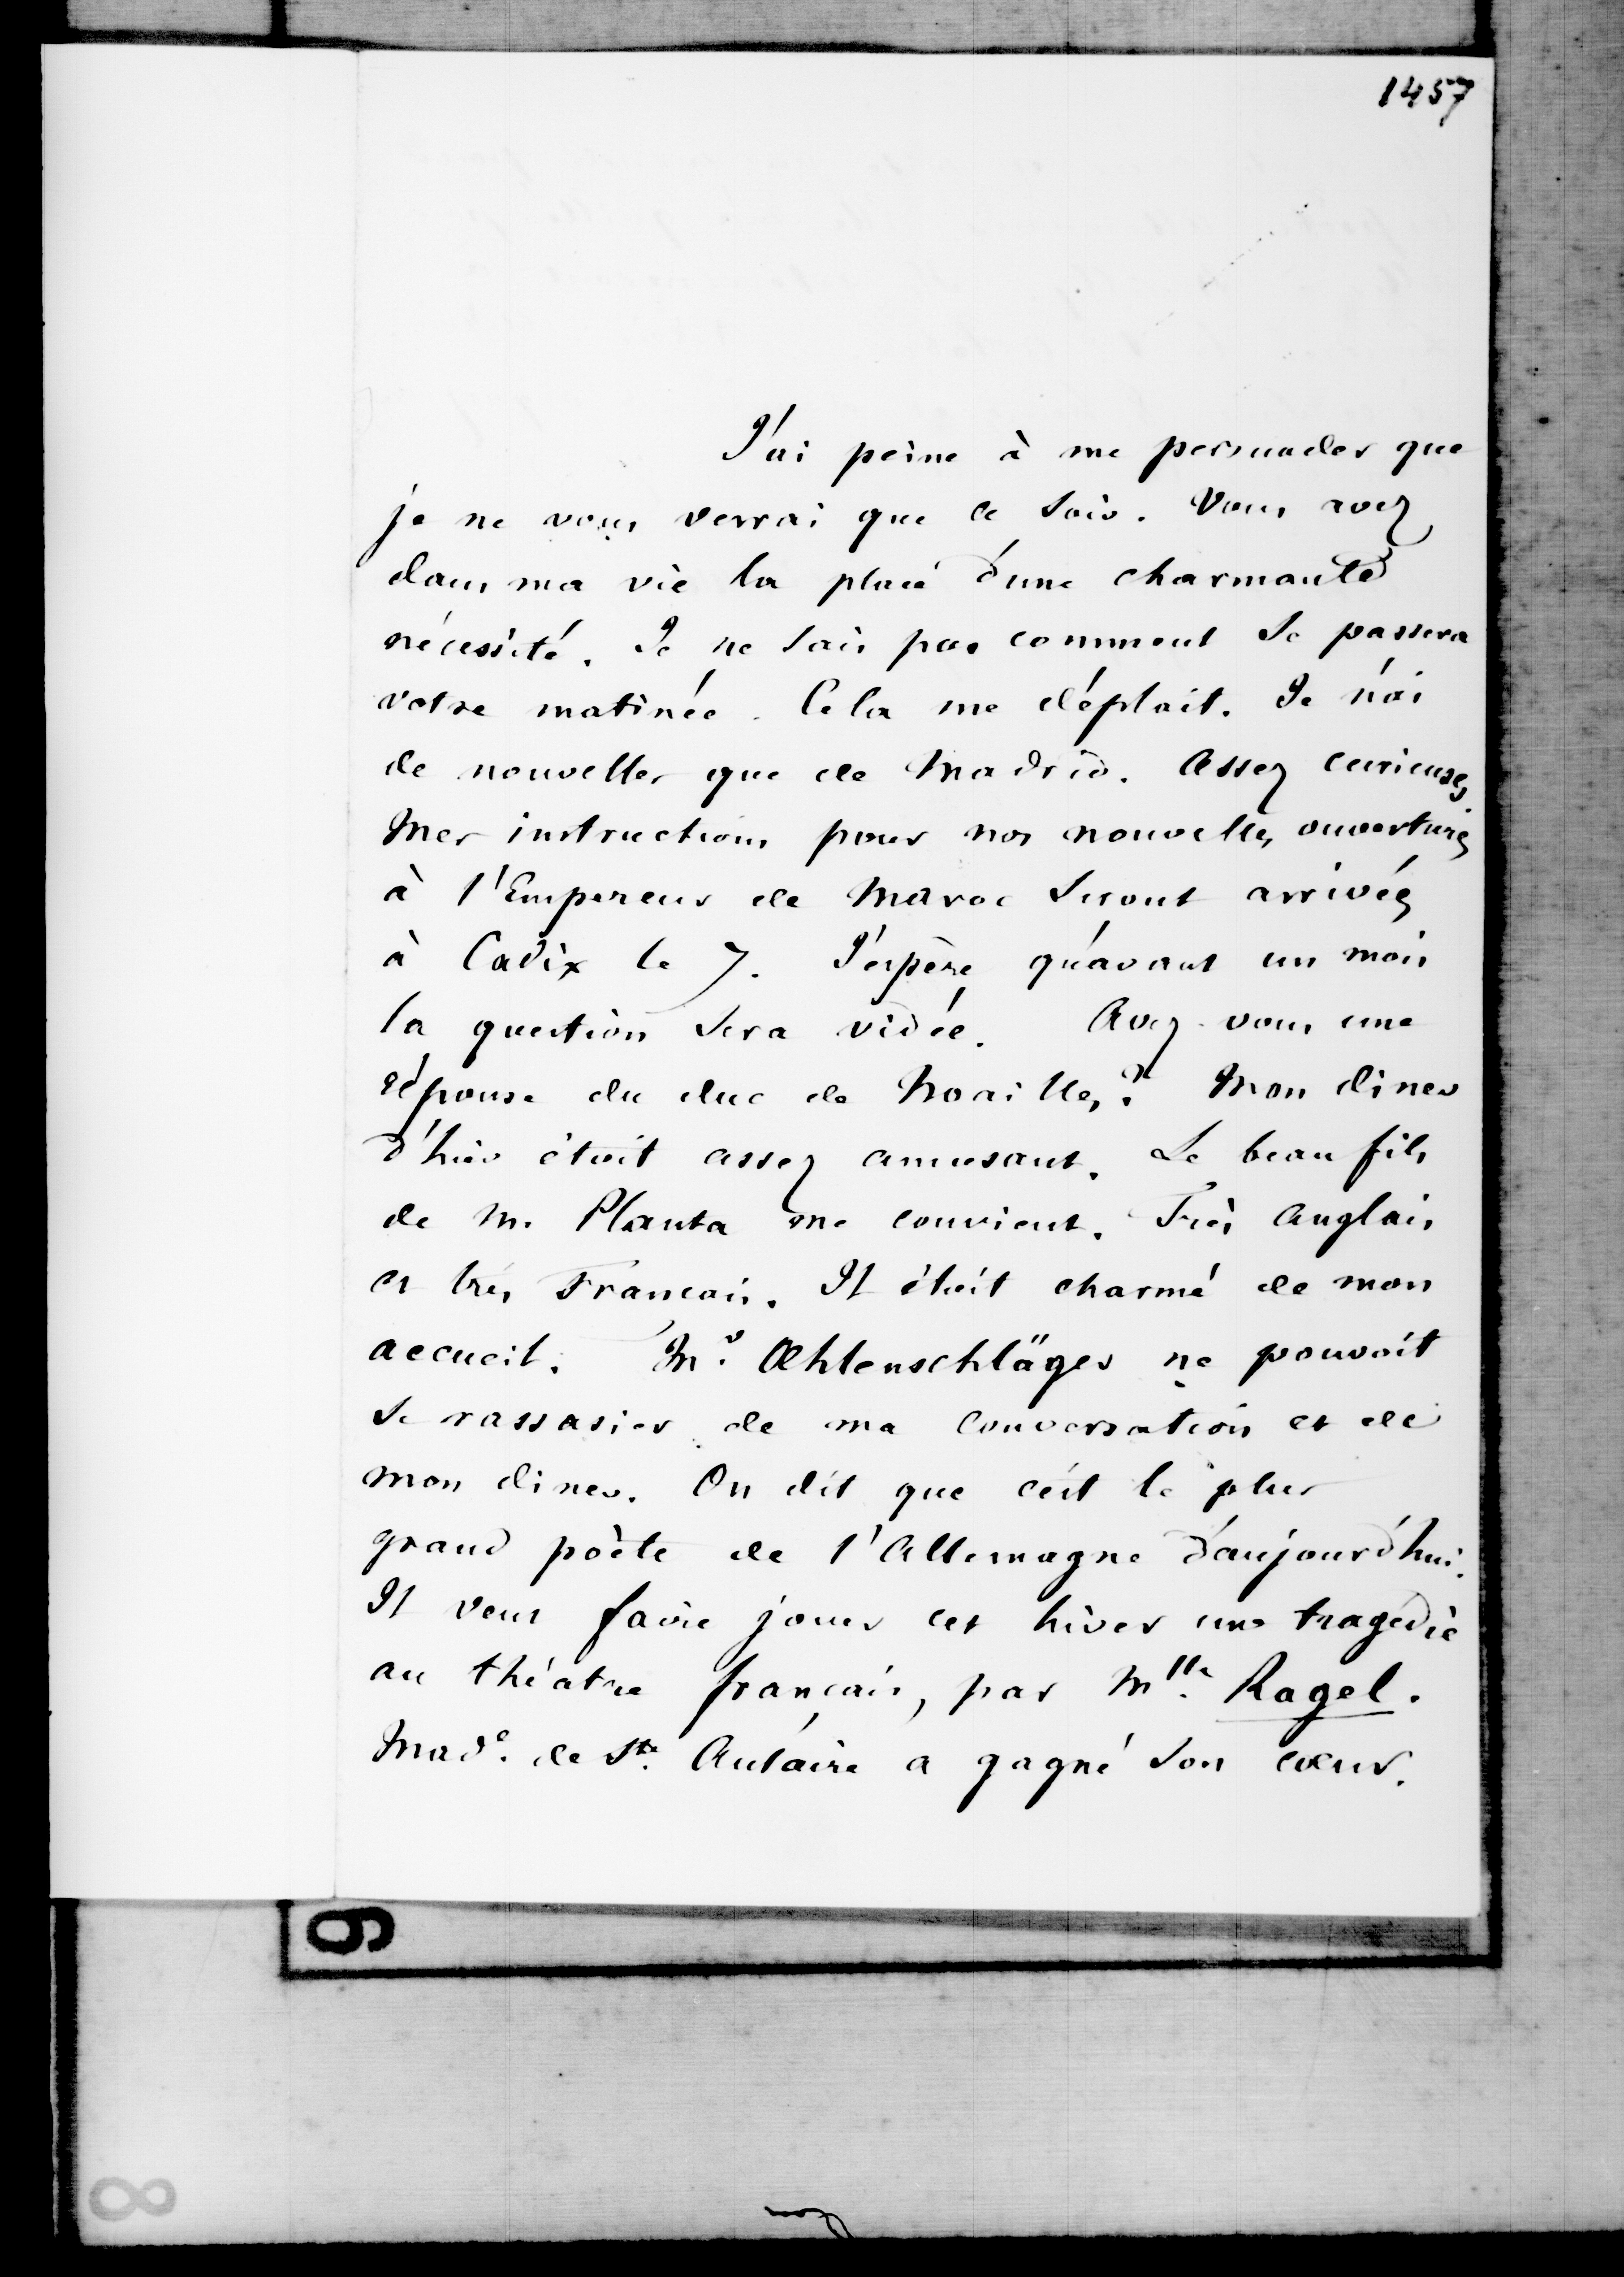 1457
J'ai peine à me persuader que
je ne vous verrai que ce soir. Vous avez
dans ma vie la place d'une charmante
nécessité. Je ne sais pas comment se passera
votre matinée. Cela me déplait. Je n'ai
de nouvelles que de Madrid. Assez curieuses
Mes instructions pour nos nouvelles ouvertures
à l'Empereur de Maroc seront arrivées
à Cadix le 7. J'espère qu'avant un mois
la question sera vidée. Avez-vous une
réponse du duc de Noailles? Mon diner
d'hier étoit assez amusant. Le beau fils
de M. Planta me convient. Très Anglais
et très Français. Il étoit charmé de mon
accueil. Mr. Œhlenschläger ne pouvoit
se rassasier de ma conversation et de
mon diner. On dit que c'est le plus
grand poète de l'Allemagne d'aujourd'hui.
Il veut faire jouer cet hiver une tragédie
au théatre français, par Mlle. Ragel.
Made. de Ste. Aulaire a gagné son cœur.
9
8